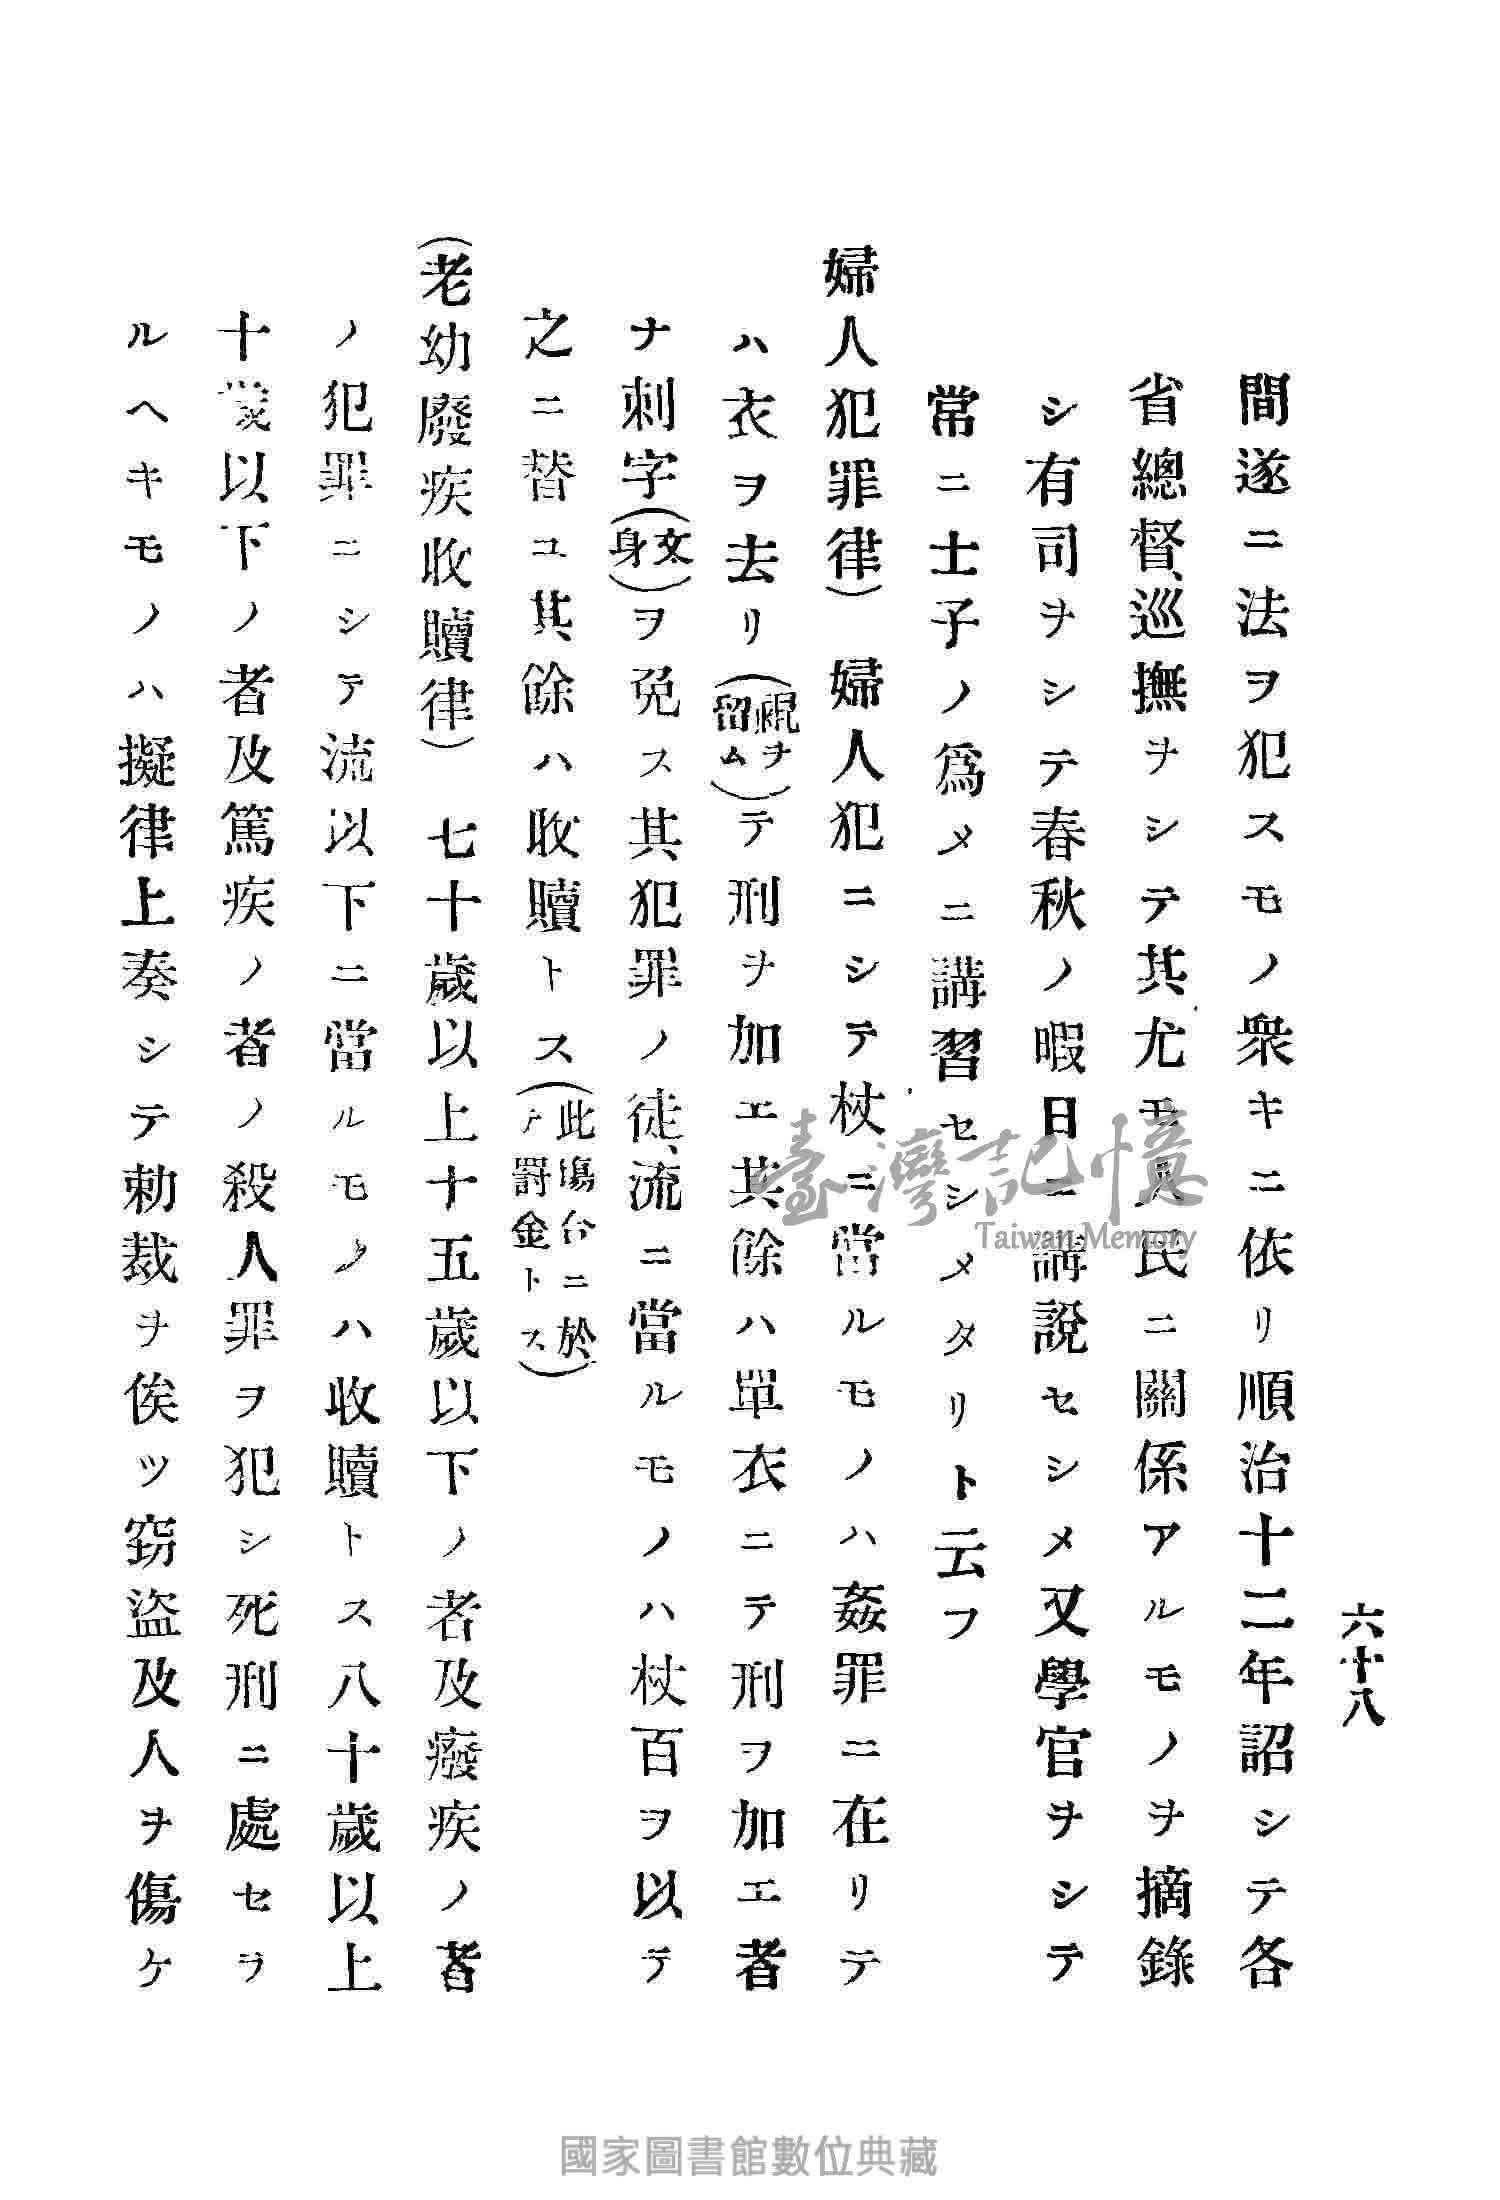 六十八
間遂ニ法ヲ犯スモノ衆キニ依リ順治十二年詔シテ各
省總督、巡撫ヲシテ其尤モ人民ニ關係アルモノヲ摘錄
シ有司ヲシテ春秋ノ暇日ニ講說セシメ又學官ヲシテ
常ニ士子ノ爲メニ講習セシメタリト云フ
婦人犯罪律) 婦人犯ニシテ杖ニ當ルモノハ姦罪ニ在リテ
ハ衣ヲ去リ(裩ヲ留ム)テ刑ヲ加エ其餘ハ單衣ニテ刑ヲ加エ者
ナ刺字(文身)ヲ免ス其犯罪ノ徒、流ニ當ルモノハ杖百ヲ以テ
之ニ替ユ其餘ハ收贖トス(此塲合ニ於テ罰金トス)
(老幼廢疾收贖律) 七十歲以上十五歲以下ノ者及癈疾ノ者
ノ犯罪ニシテ流以下ニ當ルモノハ收贖トス八十歲以上
十歲以下ノ者及篤疾ノ者ノ殺人罪ヲ犯シ死刑ニ處セラ
ルヘキモノハ擬律上奏シテ勅裁ヲ俟ツ窃盜及人ヲ傷ケ
臺灣記憶
Taiwan Memory
國家圖書館數位典藏